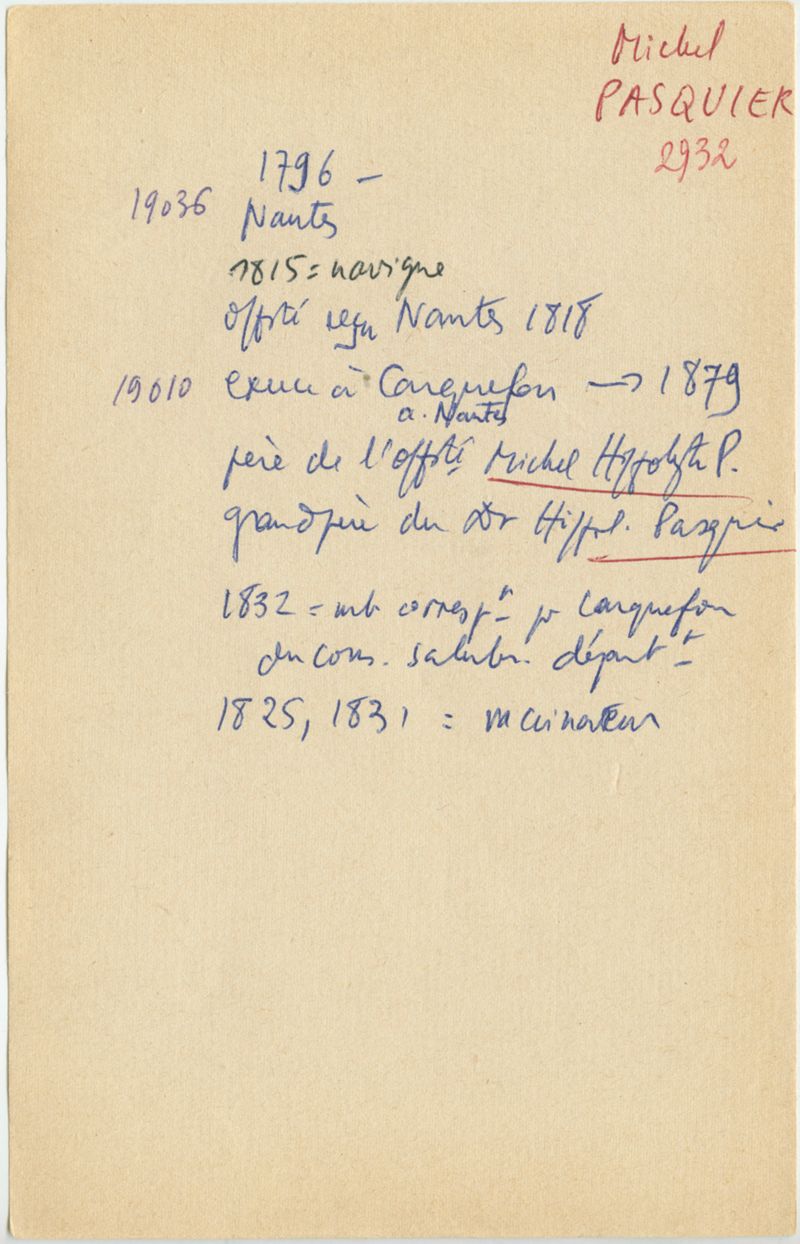 Michel
PASQUIER
2932
1796 –
19036 Nantes
1815 = navigue
offité reçu Nantes 1818
19010 exerce à Carquefou → 1879
a. Nantes
père de l'offité Michel Hippolyte P.
grandpère du Dr Hippol. Pasquier
1832 = mb correspnt pr Carquefou
du Cons. salubr. départt
1825, 1831 = vaccinateur